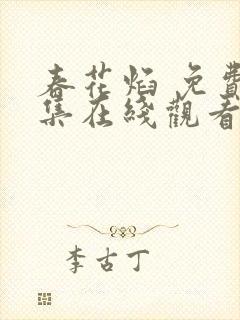 春花焰 免費
集在綫觀看
李古丁